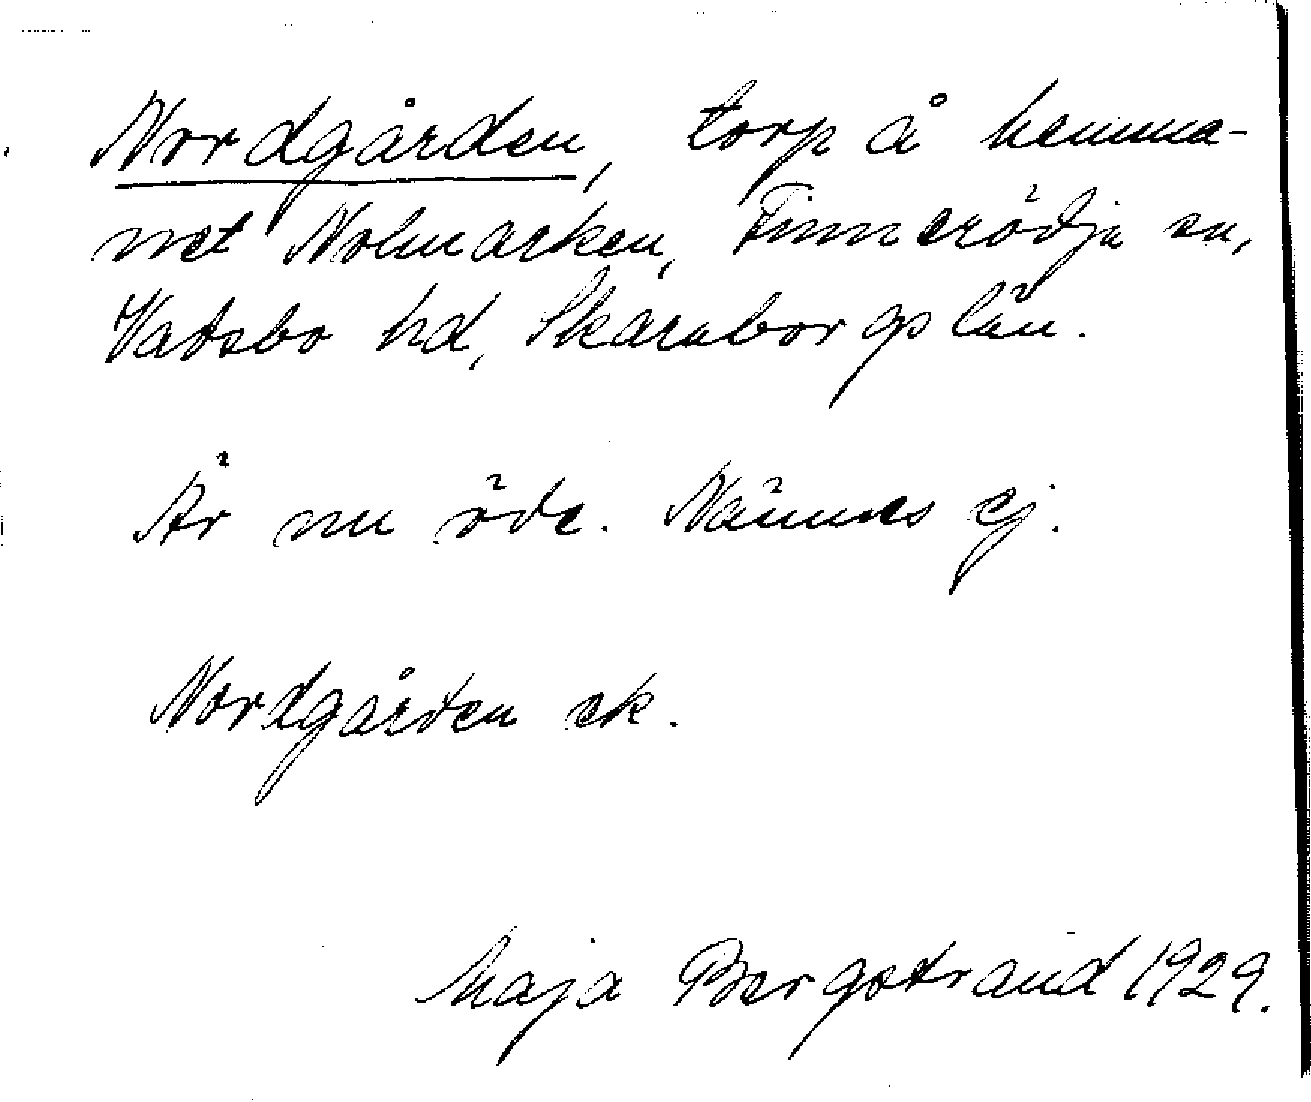 Nordgården, torp å hemma-
net Nolmarken, Finnerödja sn,
Vadsbo hd, Skaraborgs län.
Är nu öde. Nämnes ej.
Nordgården ek.
Maja Bergstrand 1929.